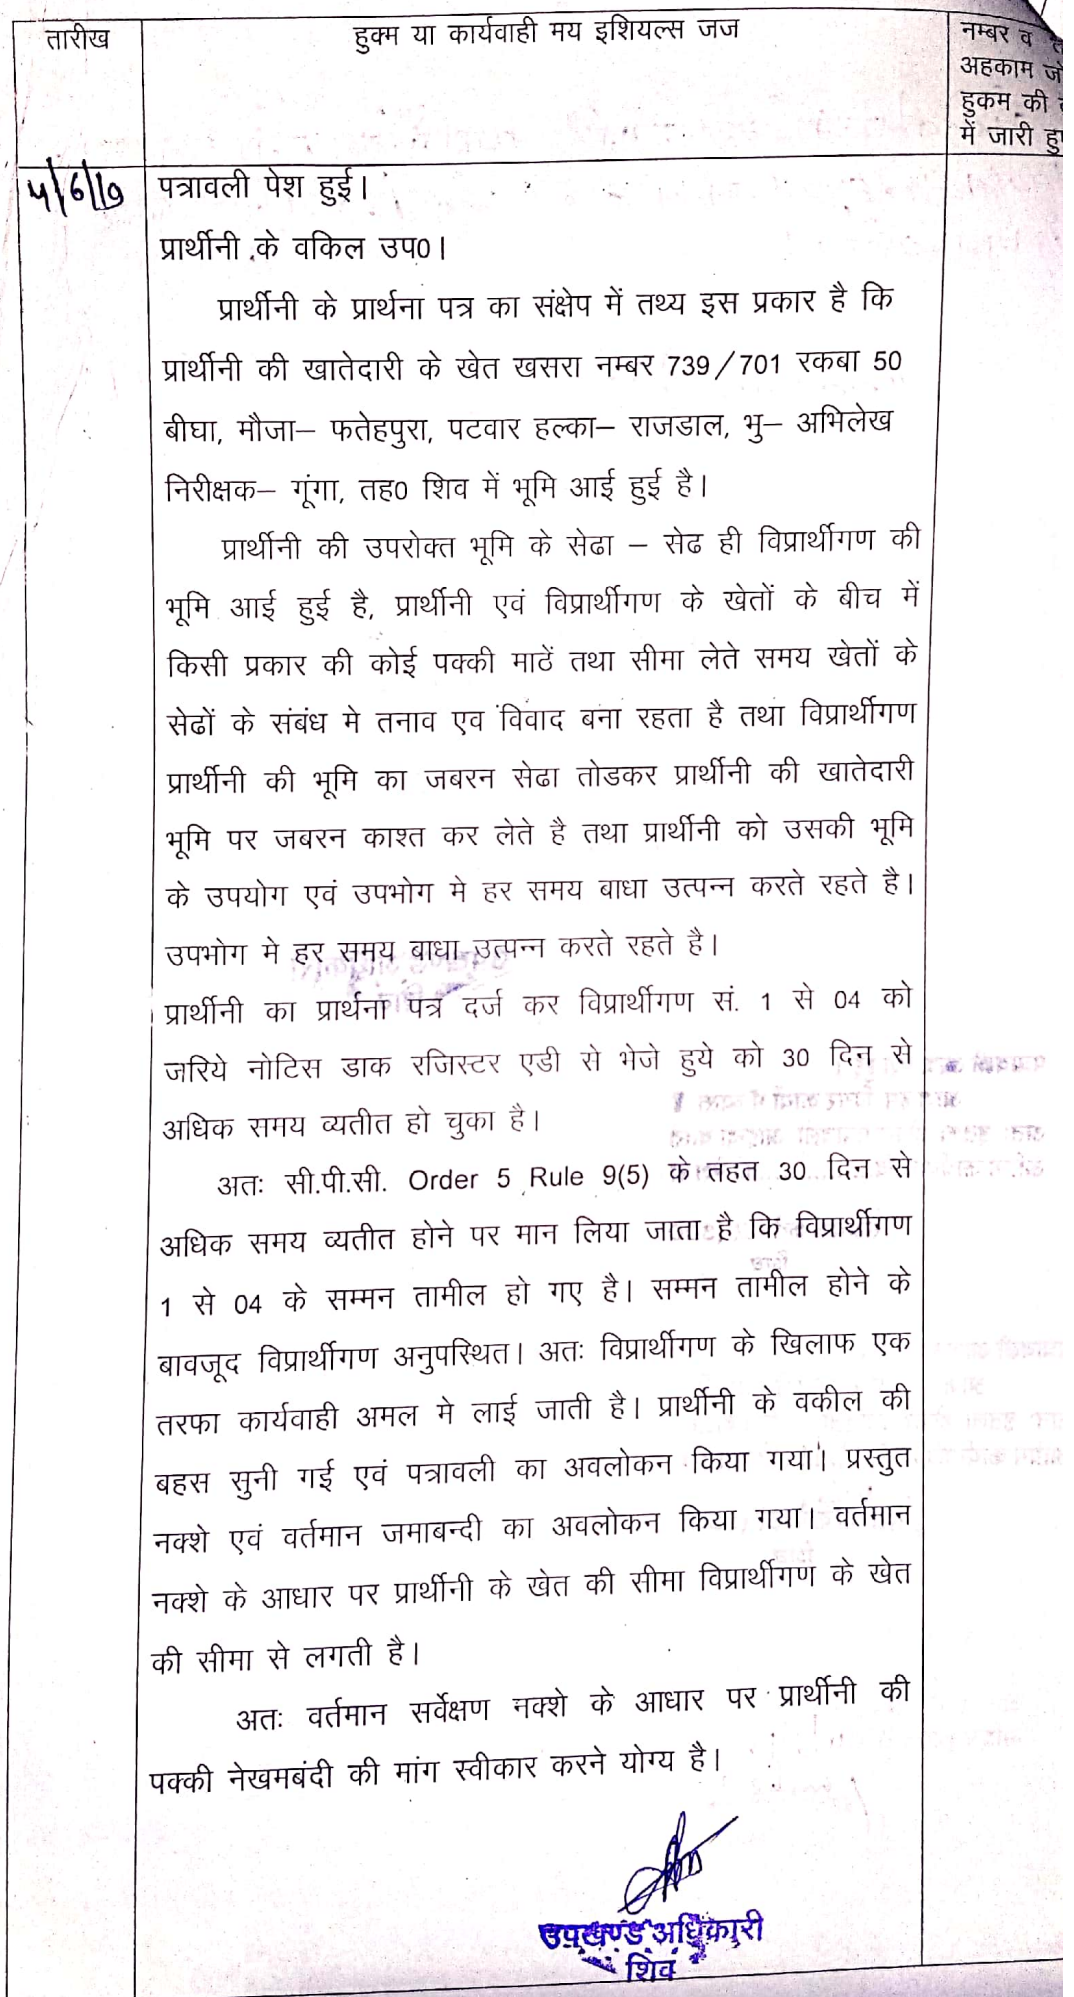 तारीख
हुक्म या कार्यवाही मय इशियल्स जज
नम्बर व
अहकाम जो
हुकम की
में जारी
4/6/19
पत्रावली पेश हुई।
प्रार्थीनी के वकिल उप0।
प्रार्थीनी के प्रार्थना पत्र का संक्षेप में तथ्य इस प्रकार है कि
प्रार्थीनी की खातेदारी के खेत खसरा नम्बर 739/701 रकबा 50
बीघा, मौजा– फतेहपुरा, पटवार हल्का– राजडाल, भु– अभिलेख
निरीक्षक– गूंगा, तह0 शिव में भूमि आई हुई है।
प्रार्थीनी की उपरोक्त भूमि के सेढा – सेढ ही विप्रार्थीगण की
भूमि आई हुई है, प्रार्थीनी एवं विप्रार्थीगण के खेतों के बीच में
किसी प्रकार की कोई पक्की माठें तथा सीमा लेते समय खेतों के
सेढों के संबंध मे तनाव एव विवाद बना रहता है तथा विप्रार्थीगण
प्रार्थीनी की भूमि का जबरन सेढा तोडकर प्रार्थीनी की खातेदारी
भूमि पर जबरन काश्त कर लेते है तथा प्रार्थीनी को उसकी भूमि
के उपयोग एवं उपभोग मे हर समय बाधा उत्पन्न करते रहते है।
उपभोग मे हर समय बाधा उत्पन्न करते रहते है।
प्रार्थीनी का प्रार्थना पत्र दर्ज कर विप्रार्थीगण सं. 1 से 04 को
जरिये नोटिस डाक रजिस्टर एडी से भेजे हुये को 30 दिन से
अधिक समय व्यतीत हो चुका है।
अतः सी.पी.सी. Order 5 Rule 9(5) के तहत 30 दिन से
अधिक समय व्यतीत होने पर मान लिया जाता है कि विप्रार्थीगण
1 से 04 के सम्मन तामील हो गए है। सम्मन तामील होने के
बावजूद विप्रार्थीगण अनुपस्थित। अतः विप्रार्थीगण के खिलाफ एक
तरफा कार्यवाही अमल मे लाई जाती है। प्रार्थीनी के वकील की
बहस सुनी गई एवं पत्रावली का अवलोकन किया गया। प्रस्तुत
नक्शे एवं वर्तमान जमाबन्दी का अवलोकन किया गया। वर्तमान
नक्शे के आधार पर प्रार्थीनी के खेत की सीमा विप्रार्थीगण के खेत
की सीमा से लगती है।
अतः वर्तमान सर्वेक्षण नक्शे के आधार पर प्रार्थीनी की
पक्की नेखमबंदी की मांग स्वीकार करने योग्य है।
उपखण्ड अधिकारी
शिव